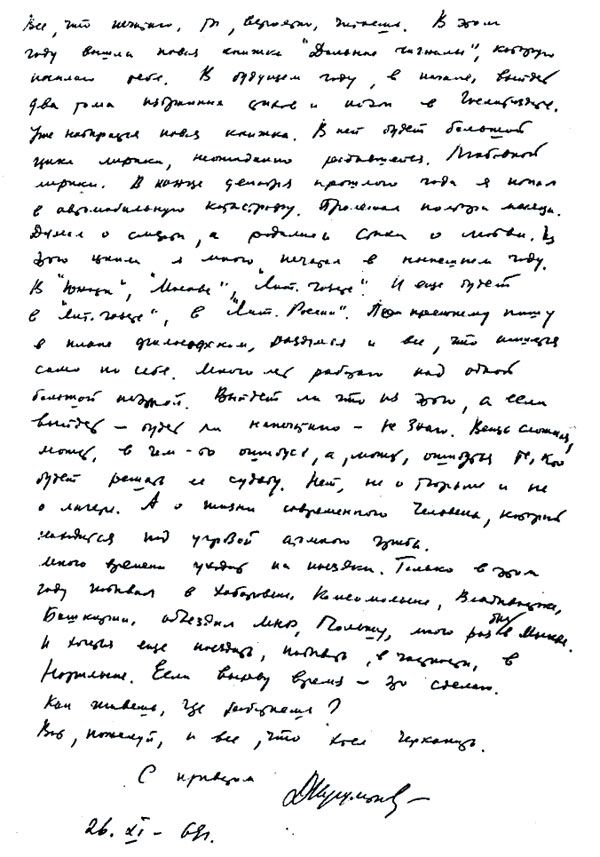 Все, что печатаю, ты, вероятно, читаешь. В этом
году вышла новая книжка "Дальние сигналы", которую
посылаю тебе. В будущем году, в начале, выйдет
два тома избранных стихов и поэм в Гослитиздате.
Уже набирается новая книжка. В ней будет большой
цикл лирики, неожиданно родившийся. Любовной
лирики. В конце декабря прошлого года я попал
в автомобильную катастрофу. Пролежал полтора месяца.
Думал о смерти, а родились стихи о любви. Из
этого цикла я много печатал в нынешнем году.
В "Юности", "Москве", "Лит. газете". И еще будет
в "Лит. газете", в "Лит. России". По-прежнему пишу
в плане философском, раздумья и все, что пишется
само по себе. Много лет работаю над одной
большой поэмой. Выйдет ли что из этого, а если
выйдет – будет ли напечатано – не знаю. Вещь сложная,
может, в чем-то ошибусь, а, может, ошибутся те, кто
будет решать ее судьбу. Нет, не о тюрьме и не
о лагере. А о жизни современного Человека, который
находится под угрозой атомного гриба.
Много времени уходит на поездки. Только в этом
году побывал в Хабаровске, Комсомольске, Владивостоке,
Башкирии, объездил Польшу, много раз был в Минске.
И хочется еще поездить, побывать, в частности, в
Норильске. Если выкрою время – это сделаю.
Как живешь, где работаешь?
Вот, пожалуй, и все, что хотел черкануть.
С приветом
26. XI – 69г.